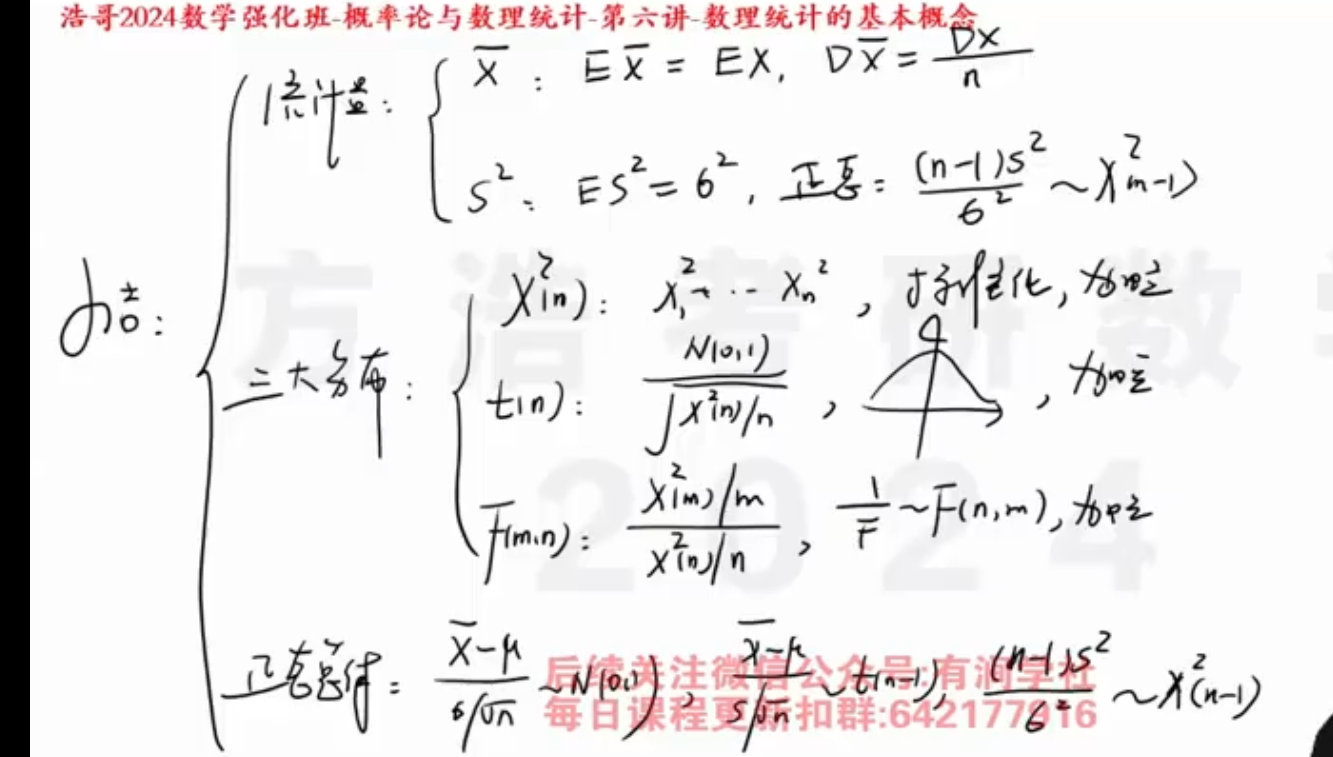 浩哥2024数学强化班-概率论与数理统计-第六讲-数理统计的基本概念
统计量: X̄: EX̄ = EX, DX̄ = DX/n
S²: ES² = σ², 正态: (n-1)S²/σ² ~ χ²(n-1)
小结:
三大分布:
χ²(n): X₁² + ⋯ Xₙ², 标准化,
t(n): N(0,1)/√(χ²(n)/n),
F(m,n): (χ²(m)/m)/(χ²(n)/n), 1/F ~ F(n,m),
正态总体: (X̄-μ)/(σ/√n) ~ N(0,1), (X̄-μ)/(S/√n) ~ t(n-1), (n-1)S²/σ² ~ χ²(n-1)
方浩考研数学
2024
后续关注微信公众号:有润学社
每日课程更新扣群:642177916